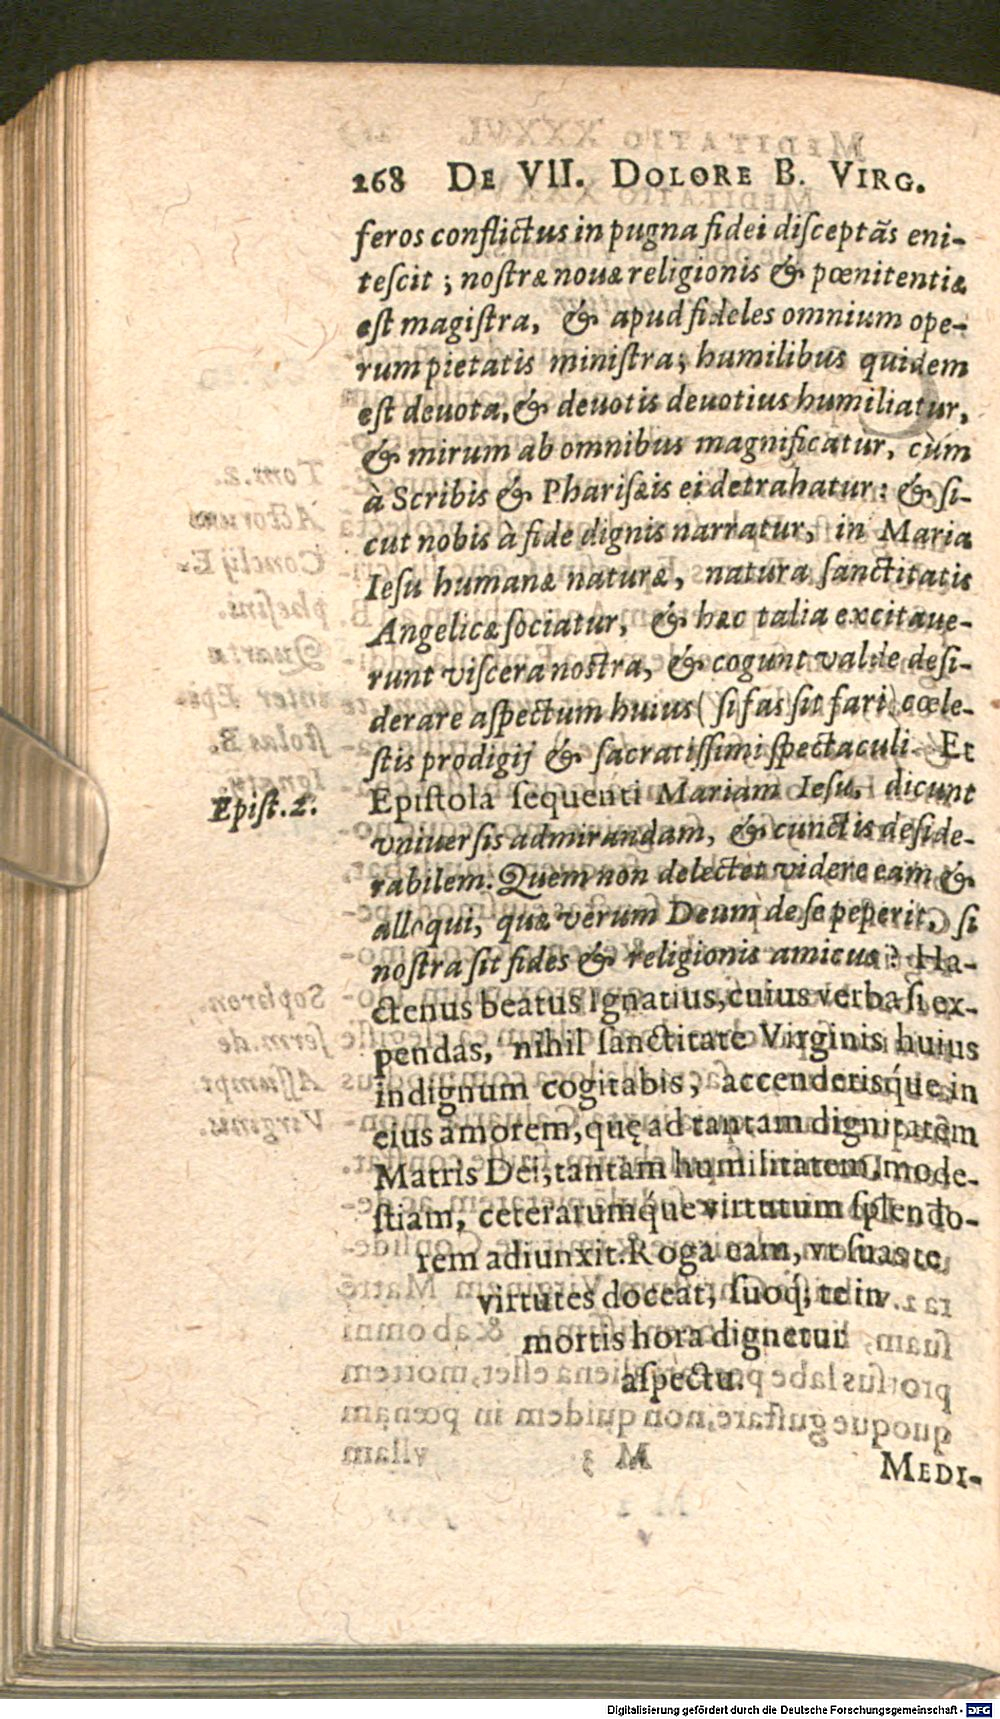 268 DE VII. DOLORE B. VIRG.
feros conflictus in pugna fidei disceptãs eni-
tescit; nostræ nouæ religionis & pœnitentiæ
est magistra, & apud fideles omnium ope-
rum pietatis ministra; humilibus quidem
est deuota, & deuotis deuotius humiliatur,
& mirum ab omnibus magnificatur, cùm
à Scribis & Pharisæis ei detrahatur: & si-
cut nobis à fide dignis narratur, in Maria
Iesu humanæ naturæ, natura sanctitatis
Angelicæ sociatur, & hæc talia excitaue-
runt viscera nostra, & cogunt valde desi-
derare aspectum huius (si fas sit fari) cœle-
stis prodigij & sacratissimi spectaculi. Et
Epist. 2.
Epistola sequenti Mariam Iesu, dicunt
vniuersis admirandam, & cunctis deside-
rabilem. Quem non delectet videre eam &
alloqui, quæ verum Deum de se peperit, si
nostra sit fides & religionis amicus? Ha-
ctenus beatus Ignatius, cuius verba si ex-
pendas, nihil sanctitate Virginis huius
indignum cogitabis, accenderisq́ue in
eius amorem, quę ad tantam dignitatem
Matris Dei, tantam humilitatem, mode-
stiam, ceterarumq́ue virtutum splendo-
rem adiunxit. Roga eam, vt suas te
virtutes doceat, suoq́; te in
mortis hora dignetur
aspectu.
MEDI-
Digitalisierung gefördert durch die Deutsche Forschungsgemeinschaft - DFG